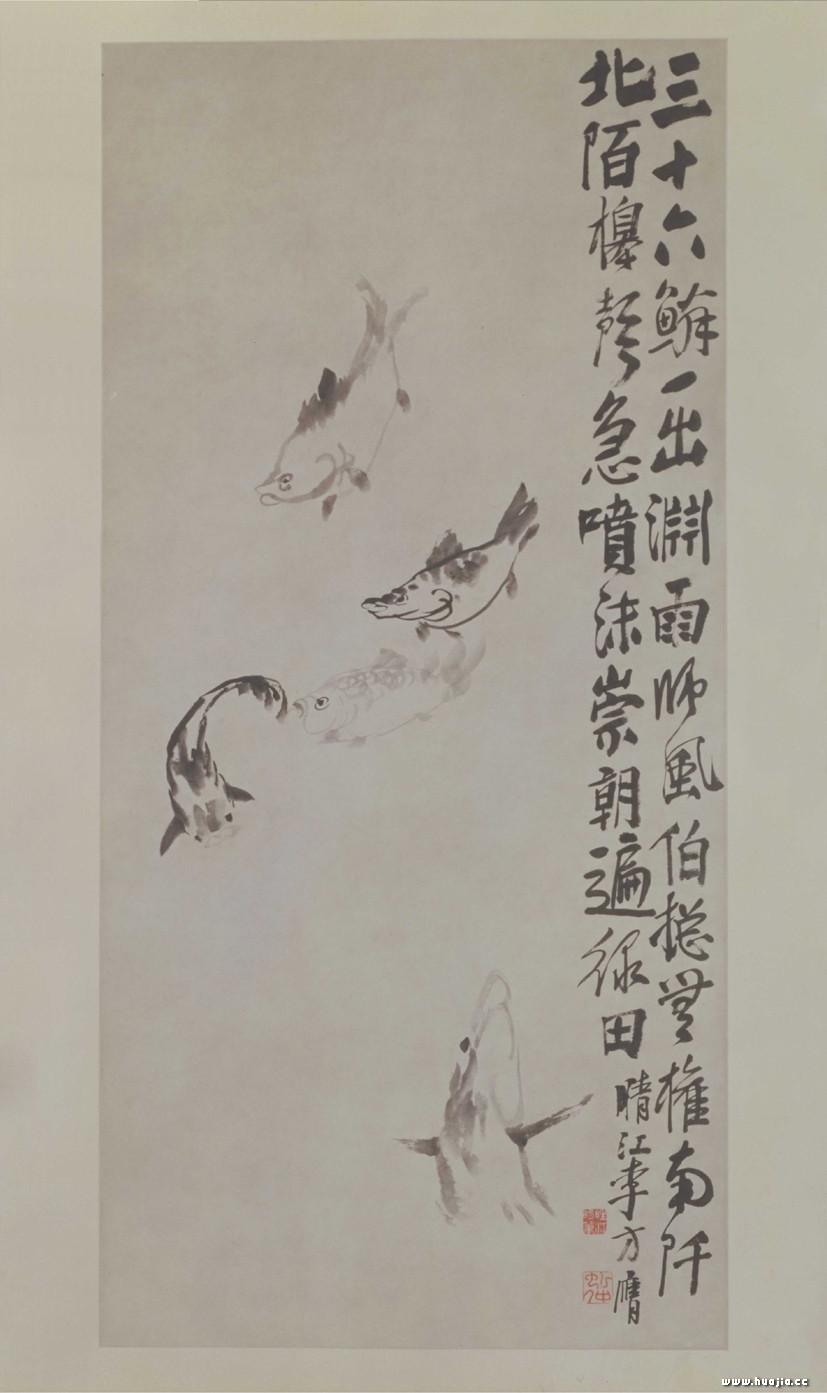 三十六鱗一出淵雨師風伯摠無權南阡
北陌槔聲急噴沫崇朝遍綠田
晴江李方膺
www.huajia.cc